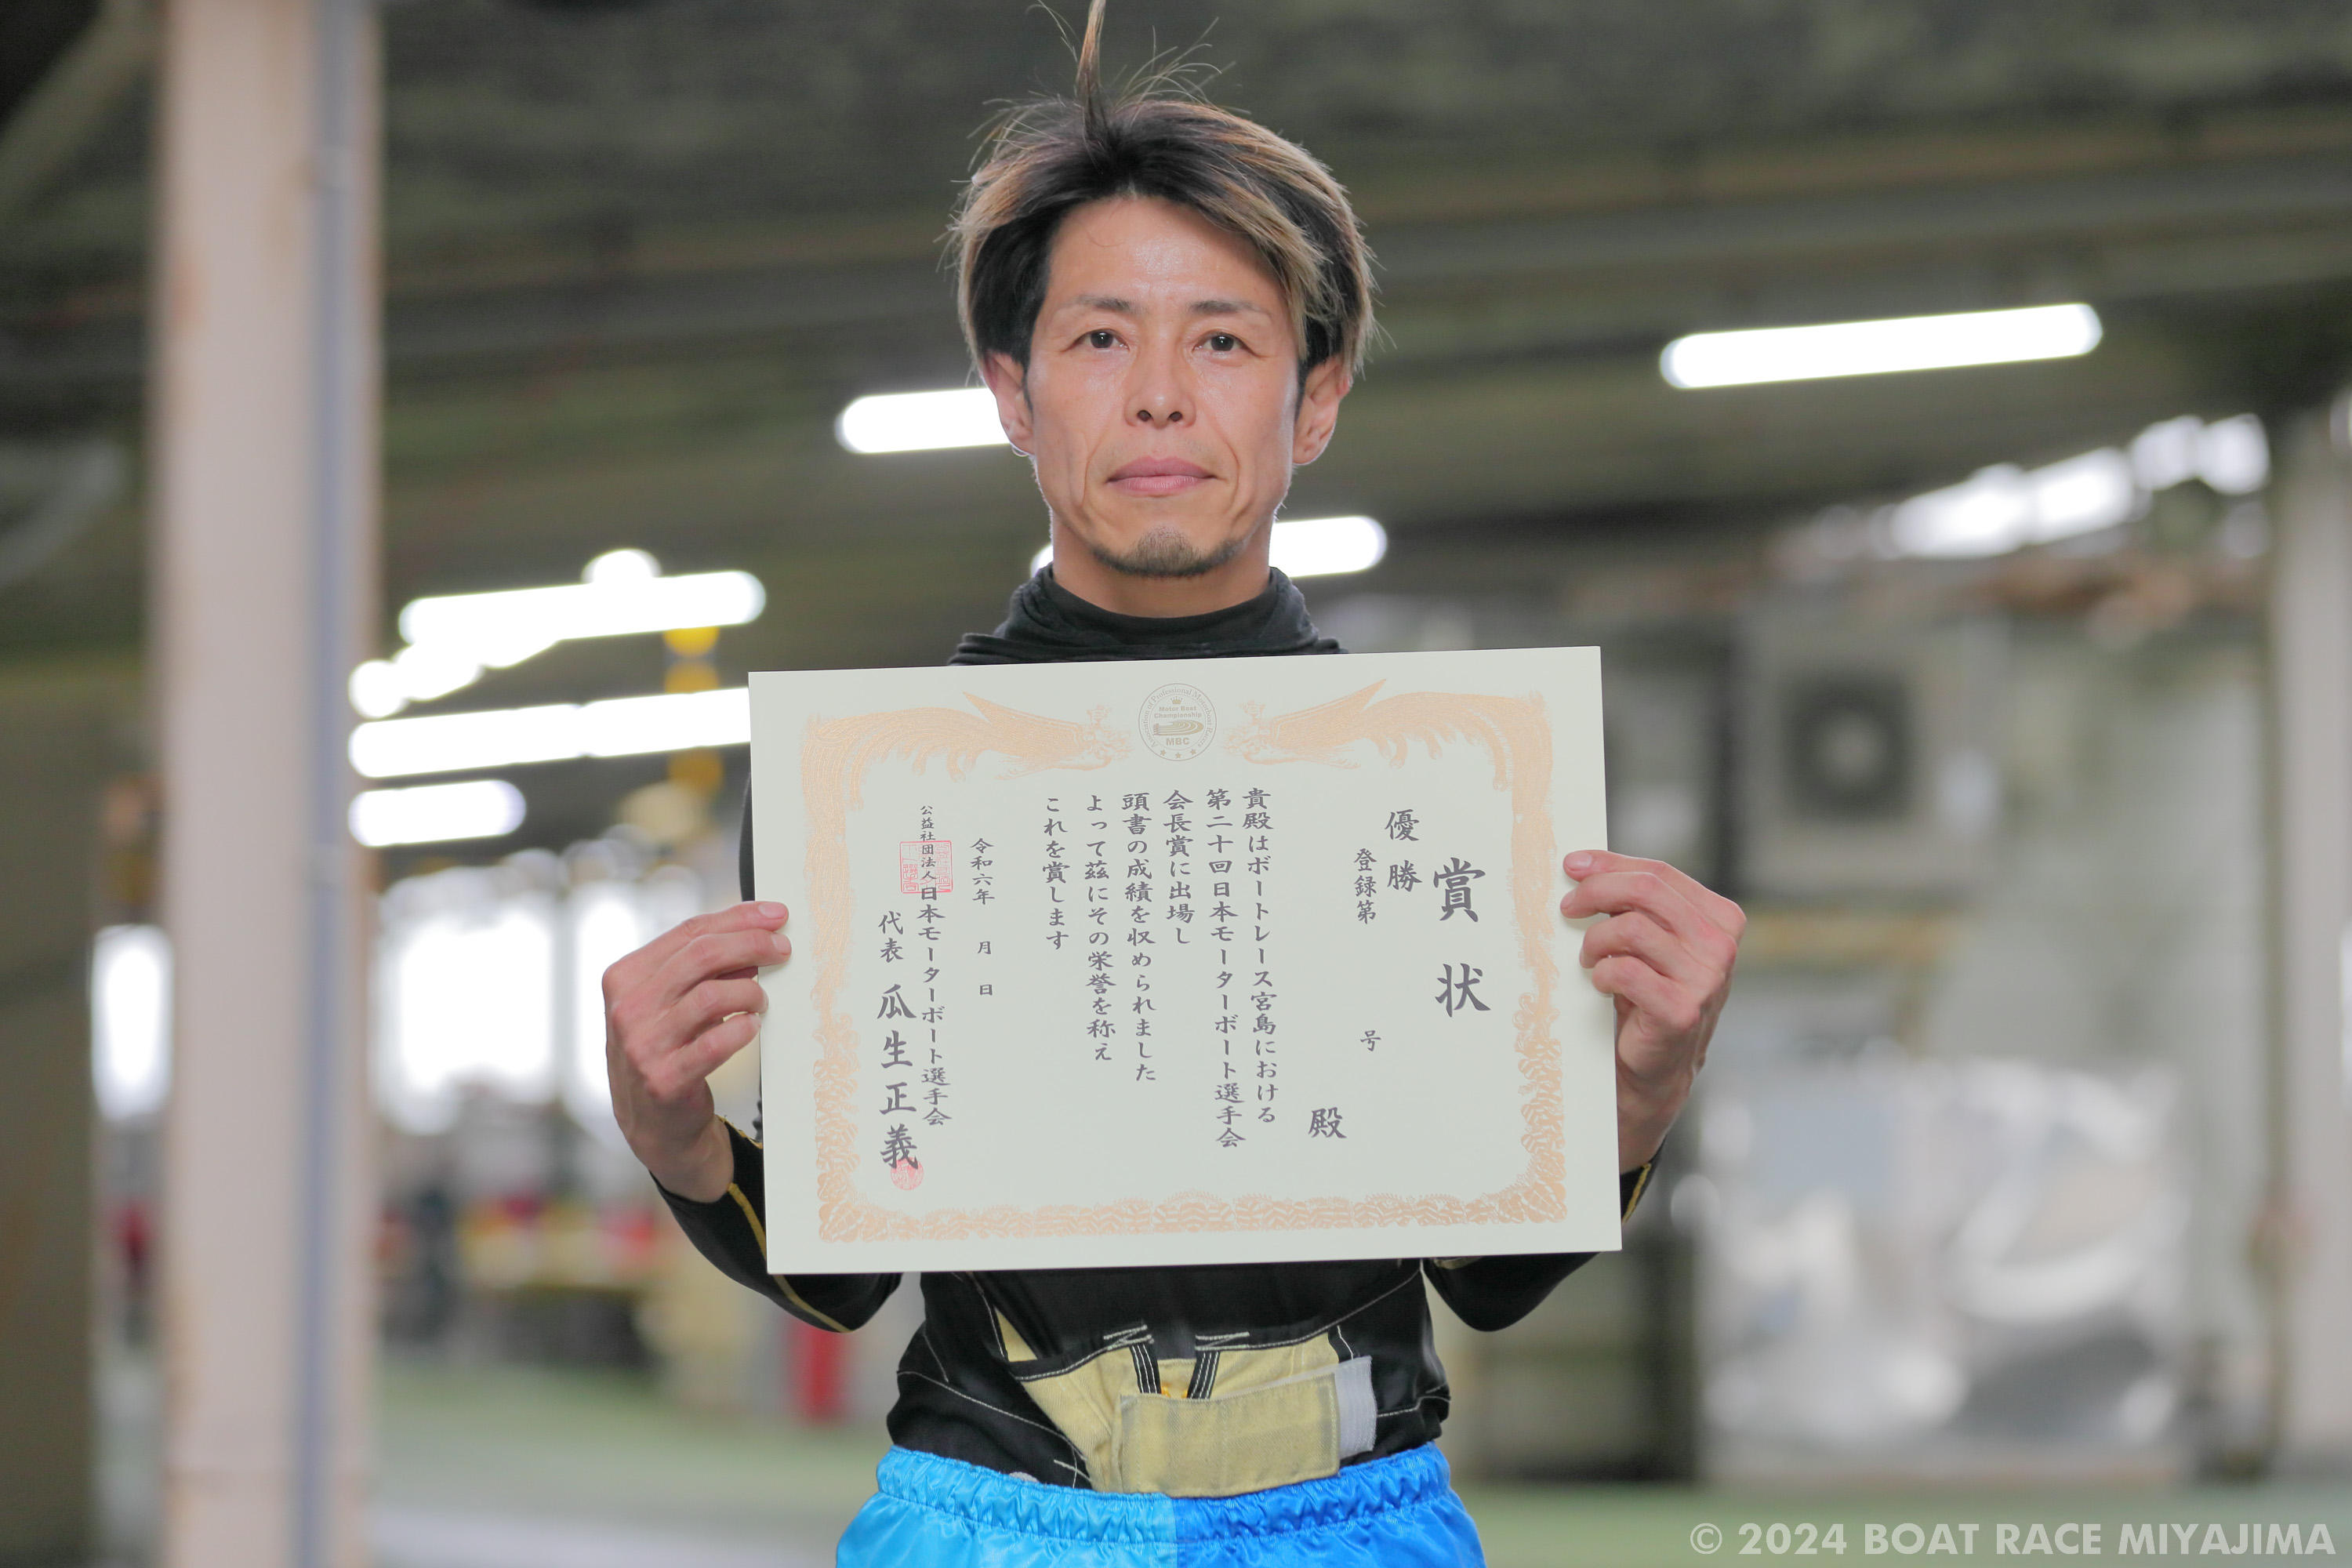 Association of Professional Motorboat Racers
Motor Boat
Championship
MBC
賞状
優勝
登録第 号
殿
貴殿はボートレース宮島における
第二十回日本モーターボート選手会
会長賞に出場し
頭書の成績を収められました
よって茲にその栄誉を称え
これを賞します
令和六年 月 日
公益社団法人日本モーターボート選手会
代表 瓜生正義
© 2024 BOAT RACE MIYAJIMA